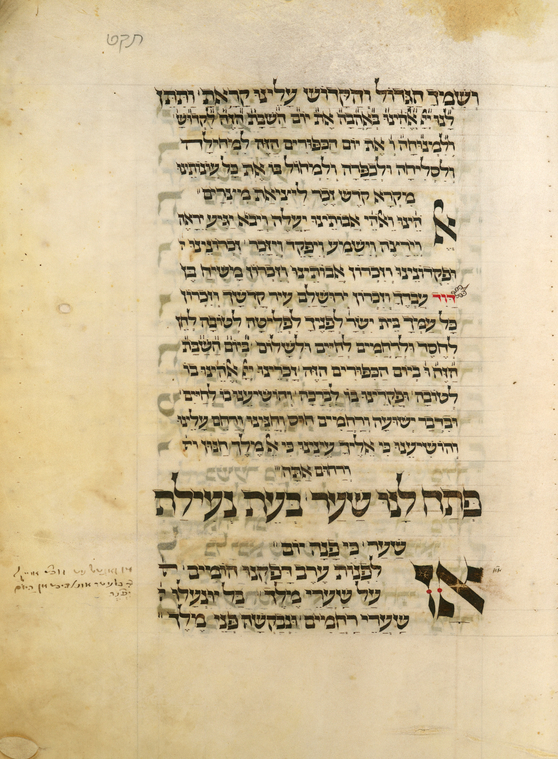 תקט
ושמך הגדול והקדוש עלינו קראת׳ ותתן
לנו יי׳ אלהינו באהבה את יום השבת הזה לקדוש׳
ולמנוחה ו׳ את יום הכפורים הזה למחילה
ולסליחה ולכפרה ולמחול בו את כל עונותינו
מקרא קדש זכר ליציאת מצרים״
אלהינו ואלהי אבותינו יעלה ויבא יגיע יראה
וירצה וישמע ויפקד ויזכר זכרונינו
ופקדונינו וזכרון אבותינו וזכרון משיח בן
דוד עבדך וזכרון ירושלם עיר קדשך וזכרון
כל עמך בית ישר׳ לפניך לפליטה לטובה לחן
לחסד ולרחמים לחיים ולשלום ביום השבת
הזה ו׳ ביום הכפורים הזה זכרינו יי׳ אלהינו בו
לטובה ופקדינו בו לברכה והושיענו בו לחיים׳
ובדבר ישועה ורחמים חוס וחנינו ורחם עלינו
והושיענו כי אליך עינינו כי א׳ מלך חנון
ורחום אתה״
פתח לנו שער בעת נעילת
שער׳ כי פנה יום״
לפנות ערב רפקנו הומים׳
על שערי מלך
שערי רחמים ונבקשה פני מלך